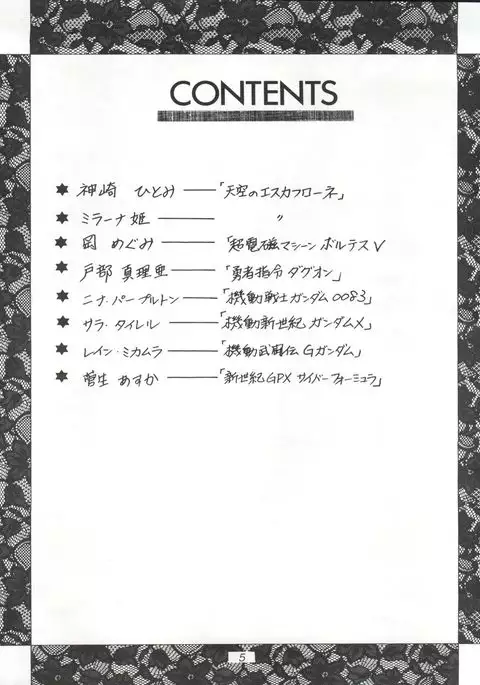 CONTENTS
★ 神崎 ひとみ ── 「天空のエスカフローネ」
★ ミラーナ姫 ── 〃
★ 岡 めぐみ ── 「超電磁マシーン ボルテスV
★ 戸部 真理亜 ── 「勇者指令ダグオン」
★ ニナ・パープルトン ── 「機動戦士ガンダム0083」
★ サラ・タイレル ── 「機動新世紀 ガンダムX」
★ レイン・ミカムラ ── 「機動武闘伝 Gガンダム」
★ 菅生 あすか ── 「新世紀GPX サイバーフォーミュラ」
5